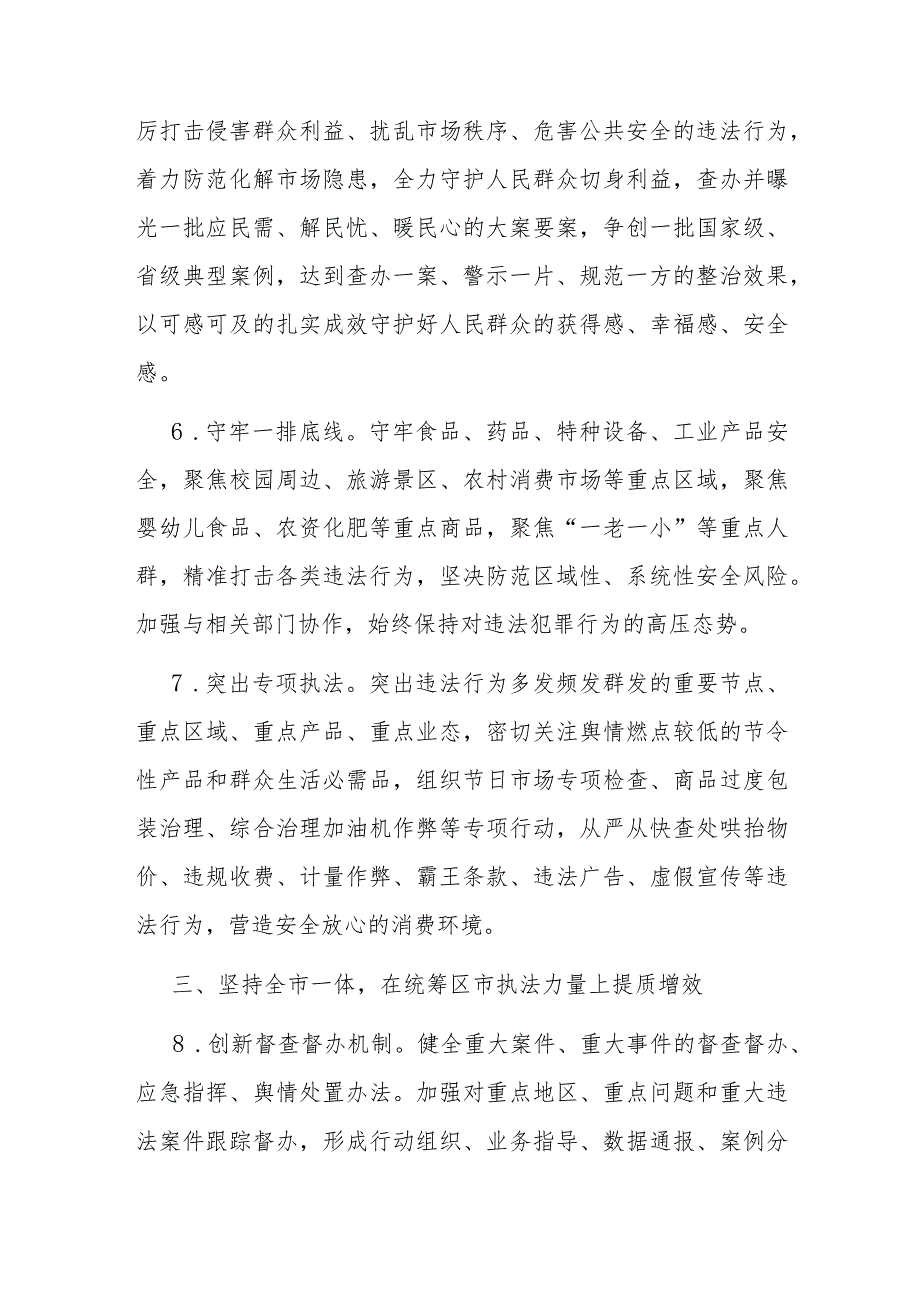 厉打击侵害群众利益、扰乱市场秩序、危害公共安全的违法行为，
着力防范化解市场隐患，全力守护人民群众切身利益，查办并曝
光一批应民需、解民忧、暖民心的大案要案，争创一批国家级、
省级典型案例，达到查办一案、警示一片、规范一方的整治效果，
以可感可及的扎实成效守护好人民群众的获得感、幸福感、安全
感。
6.守牢一排底线。守牢食品、药品、特种设备、工业产品安
全，聚焦校园周边、旅游景区、农村消费市场等重点区域，聚焦
婴幼儿食品、农资化肥等重点商品，聚焦“一老一小”等重点人
群，精准打击各类违法行为，坚决防范区域性、系统性安全风险。
加强与相关部门协作，始终保持对违法犯罪行为的高压态势。
7.突出专项执法。突出违法行为多发频发群发的重要节点、
重点区域、重点产品、重点业态，密切关注舆情燃点较低的节令
性产品和群众生活必需品，组织节日市场专项检查、商品过度包
装治理、综合治理加油机作弊等专项行动，从严从快查处哄抬物
价、违规收费、计量作弊、霸王条款、违法广告、虚假宣传等违
法行为，营造安全放心的消费环境。
三、坚持全市一体，在统筹区市执法力量上提质增效
8.创新督查督办机制。健全重大案件、重大事件的督查督办、
应急指挥、舆情处置办法。加强对重点地区、重点问题和重大违
法案件跟踪督办，形成行动组织、业务指导、数据通报、案例分